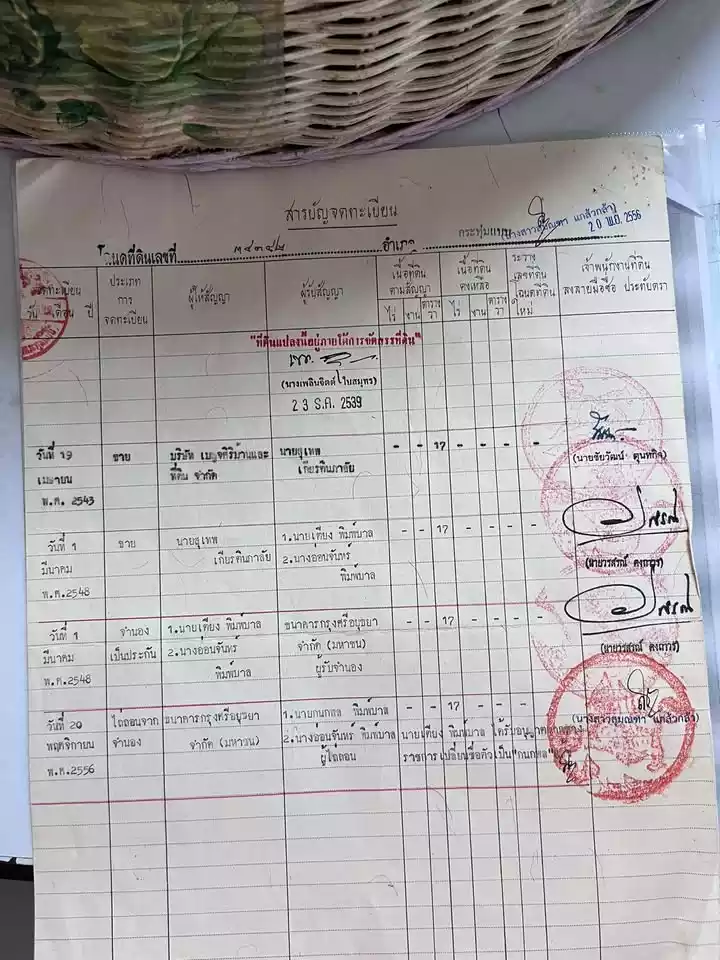 สารบัญจดทะเบียน
กระทุ่มแบน
(นางสาวสุมณฑา แกล้วกล้า)
20 พ.ย. 2556
โฉนดที่ดินเลขที่ ๓๔๓๔๒ อำเภอ
จดทะเบียน วัน เดือน ปี
ประเภทการจดทะเบียน
ผู้ให้สัญญา
ผู้รับสัญญา
เนื้อที่ดินตามสัญญา
ไร่ งาน ตารางวา
เนื้อที่ดินคงเหลือ
ไร่ งาน ตารางวา
ระวาง เลขที่ดิน โฉนดที่ดินใหม่
เจ้าพนักงานที่ดิน ลงลายมือชื่อ ประทับตรา
"ที่ดินแปลงนี้อยู่ภายใต้การจัดสรรที่ดิน"
(นางเพลินจิตต์ ใบสมุทร)
23 ธ.ค. 2539
วันที่ 19 ขาย บริษัท เบญจศิริบ้านและ นายสุเทพ - - 17 - - - -
เมษายน ที่ดิน จำกัด เกียรตินภาลัย
(นายชัยวัฒน์ ตุนทกิจ)
พ.ศ. 2543
วันที่ 1 ขาย นายสุเทพ 1.นายเตียง พิมพ์บาล - - 17 - - - -
มีนาคม เกียรตินภาลัย 2.นางอ่อนจันทร์
พ.ศ.2548 พิมพ์บาล
(นายวรสรณ์ คงถาวร)
วันที่ 1 จำนอง 1.นายเตียง พิมพ์บาล ธนาคารกรุงศรีอยุธยา - - 17 - - - -
มีนาคม เป็นประกัน 2.นางอ่อนจันทร์ จำกัด (มหาชน)
พ.ศ.2548 พิมพ์บาล ผู้รับจำนอง
(นายวรสรณ์ คงถาวร)
วันที่ 20 ไถ่ถอนจาก ธนาคารกรุงศรีอยุธยา 1.นายกนกพล พิมพ์บาล - - 17 - - -
(นางสาวสุมณฑา แกล้วกล้า)
พฤศจิกายน จำนอง จำกัด (มหาชน) 2.นางอ่อนจันทร์ พิมพ์บาล นายเตียง พิมพ์บาล ได้รับอนุญาตจากทาง
พ.ศ.2556 ผู้ไถ่ถอน ราชการ เปลี่ยนชื่อตัวเป็น"กนกพล"